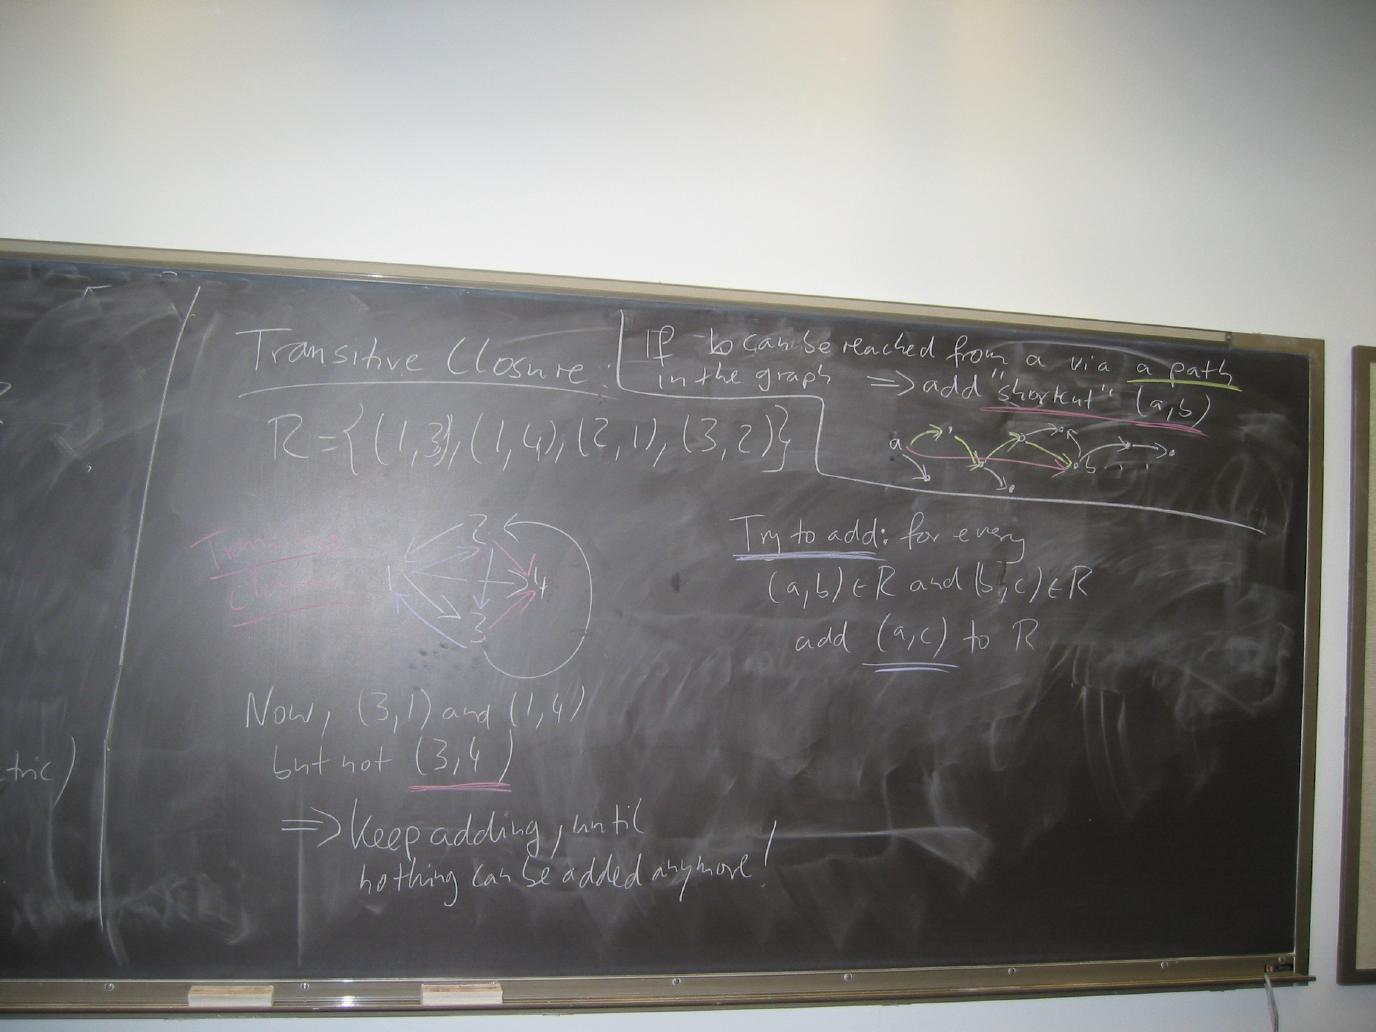 tric)
Transitive Closure:
If b can be reached from a via a path
in the graph ⇒ add "shortcut" (a,b)
R={(1,3),(1,4),(2,1),(3,2)}
a
b
Transitive
closure
2
1
4
3
Try to add: for every
(a,b)∈R and (b,c)∈R
add (a,c) to R
Now, (3,1) and (1,4)
but not (3,4)
⇒ Keep adding, until
nothing can be added anymore!